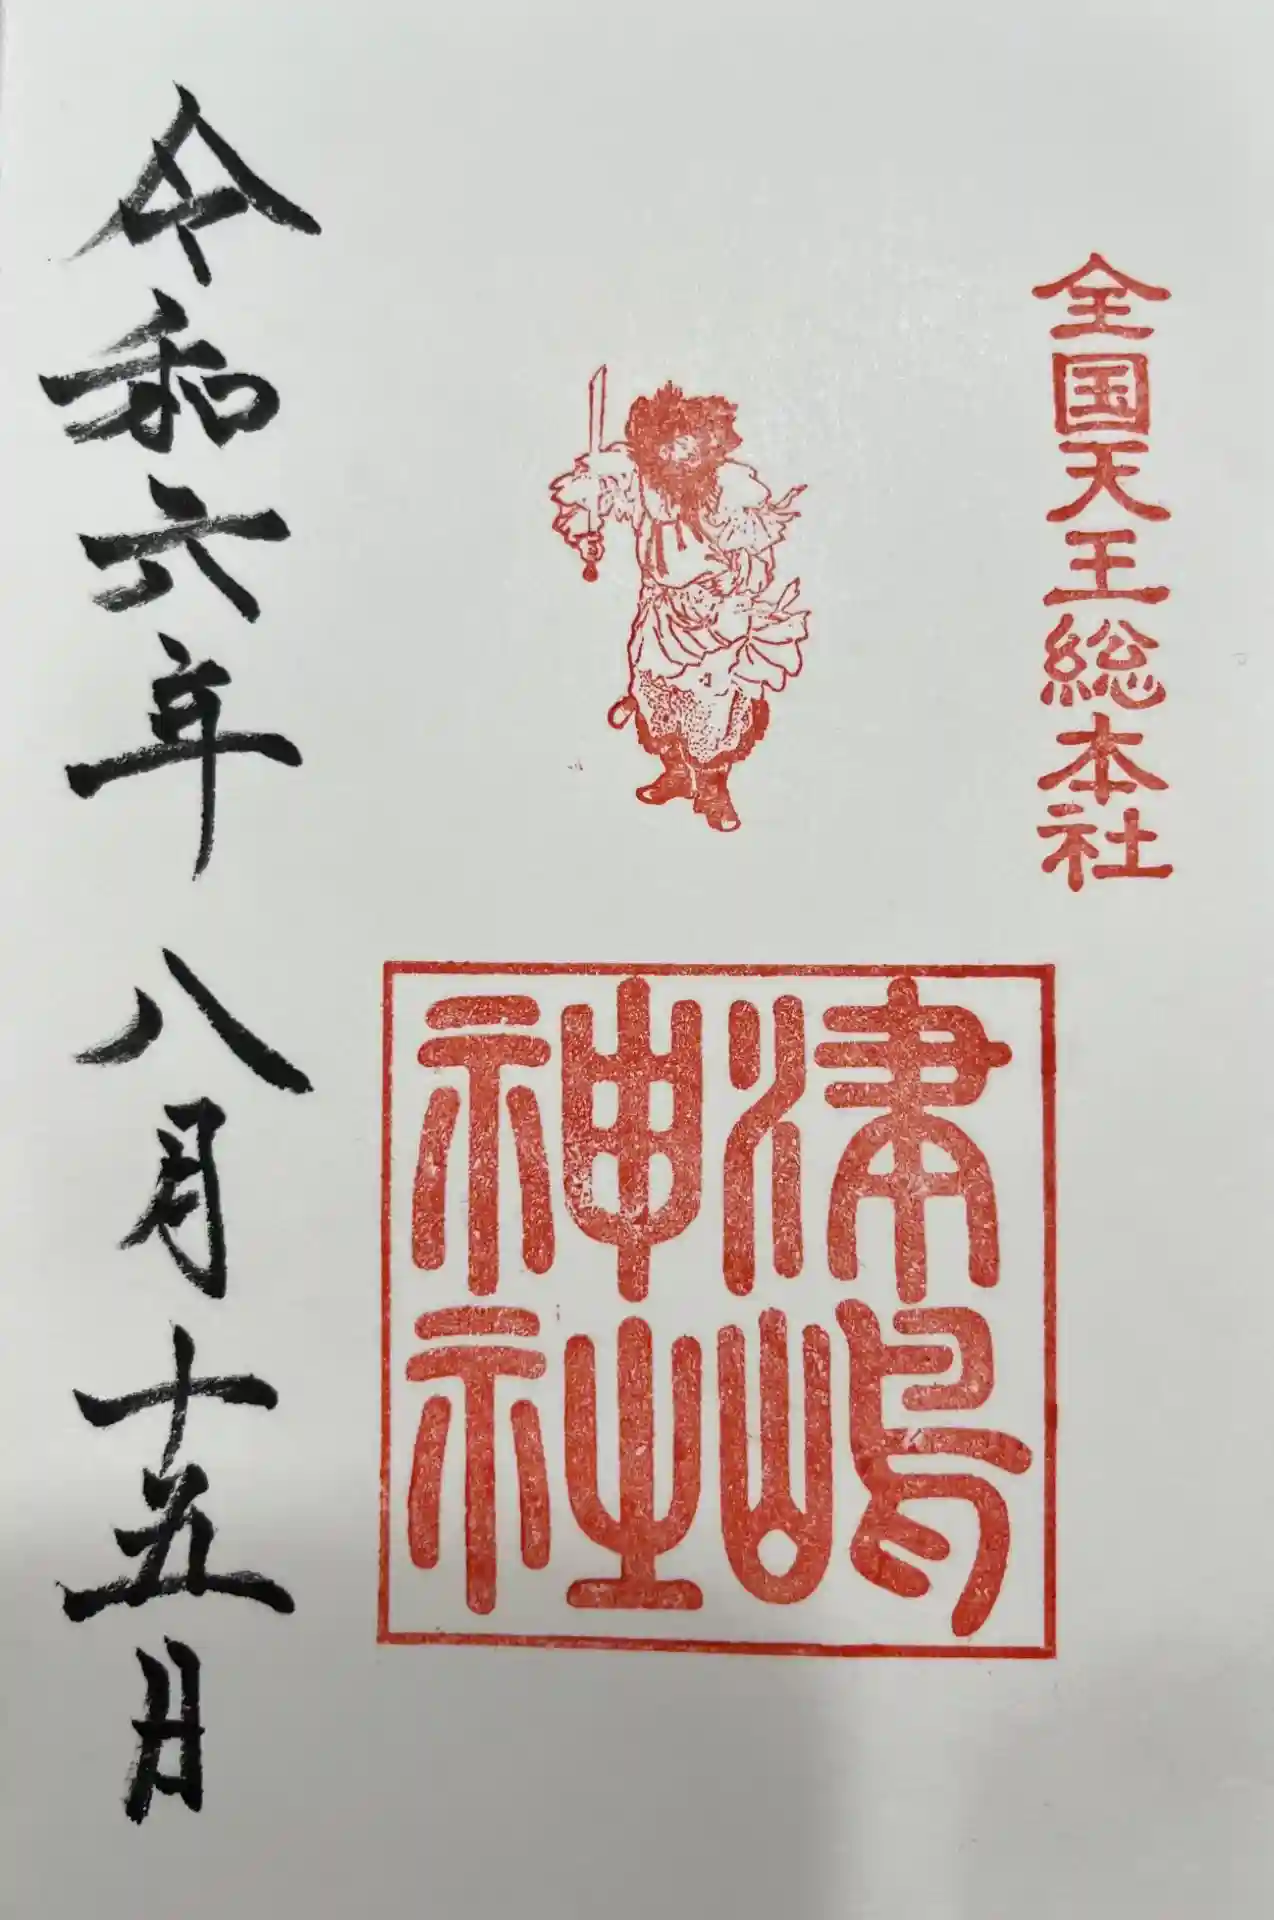 全国天王総本社
津嶋
神社
令和六年 八月十五日